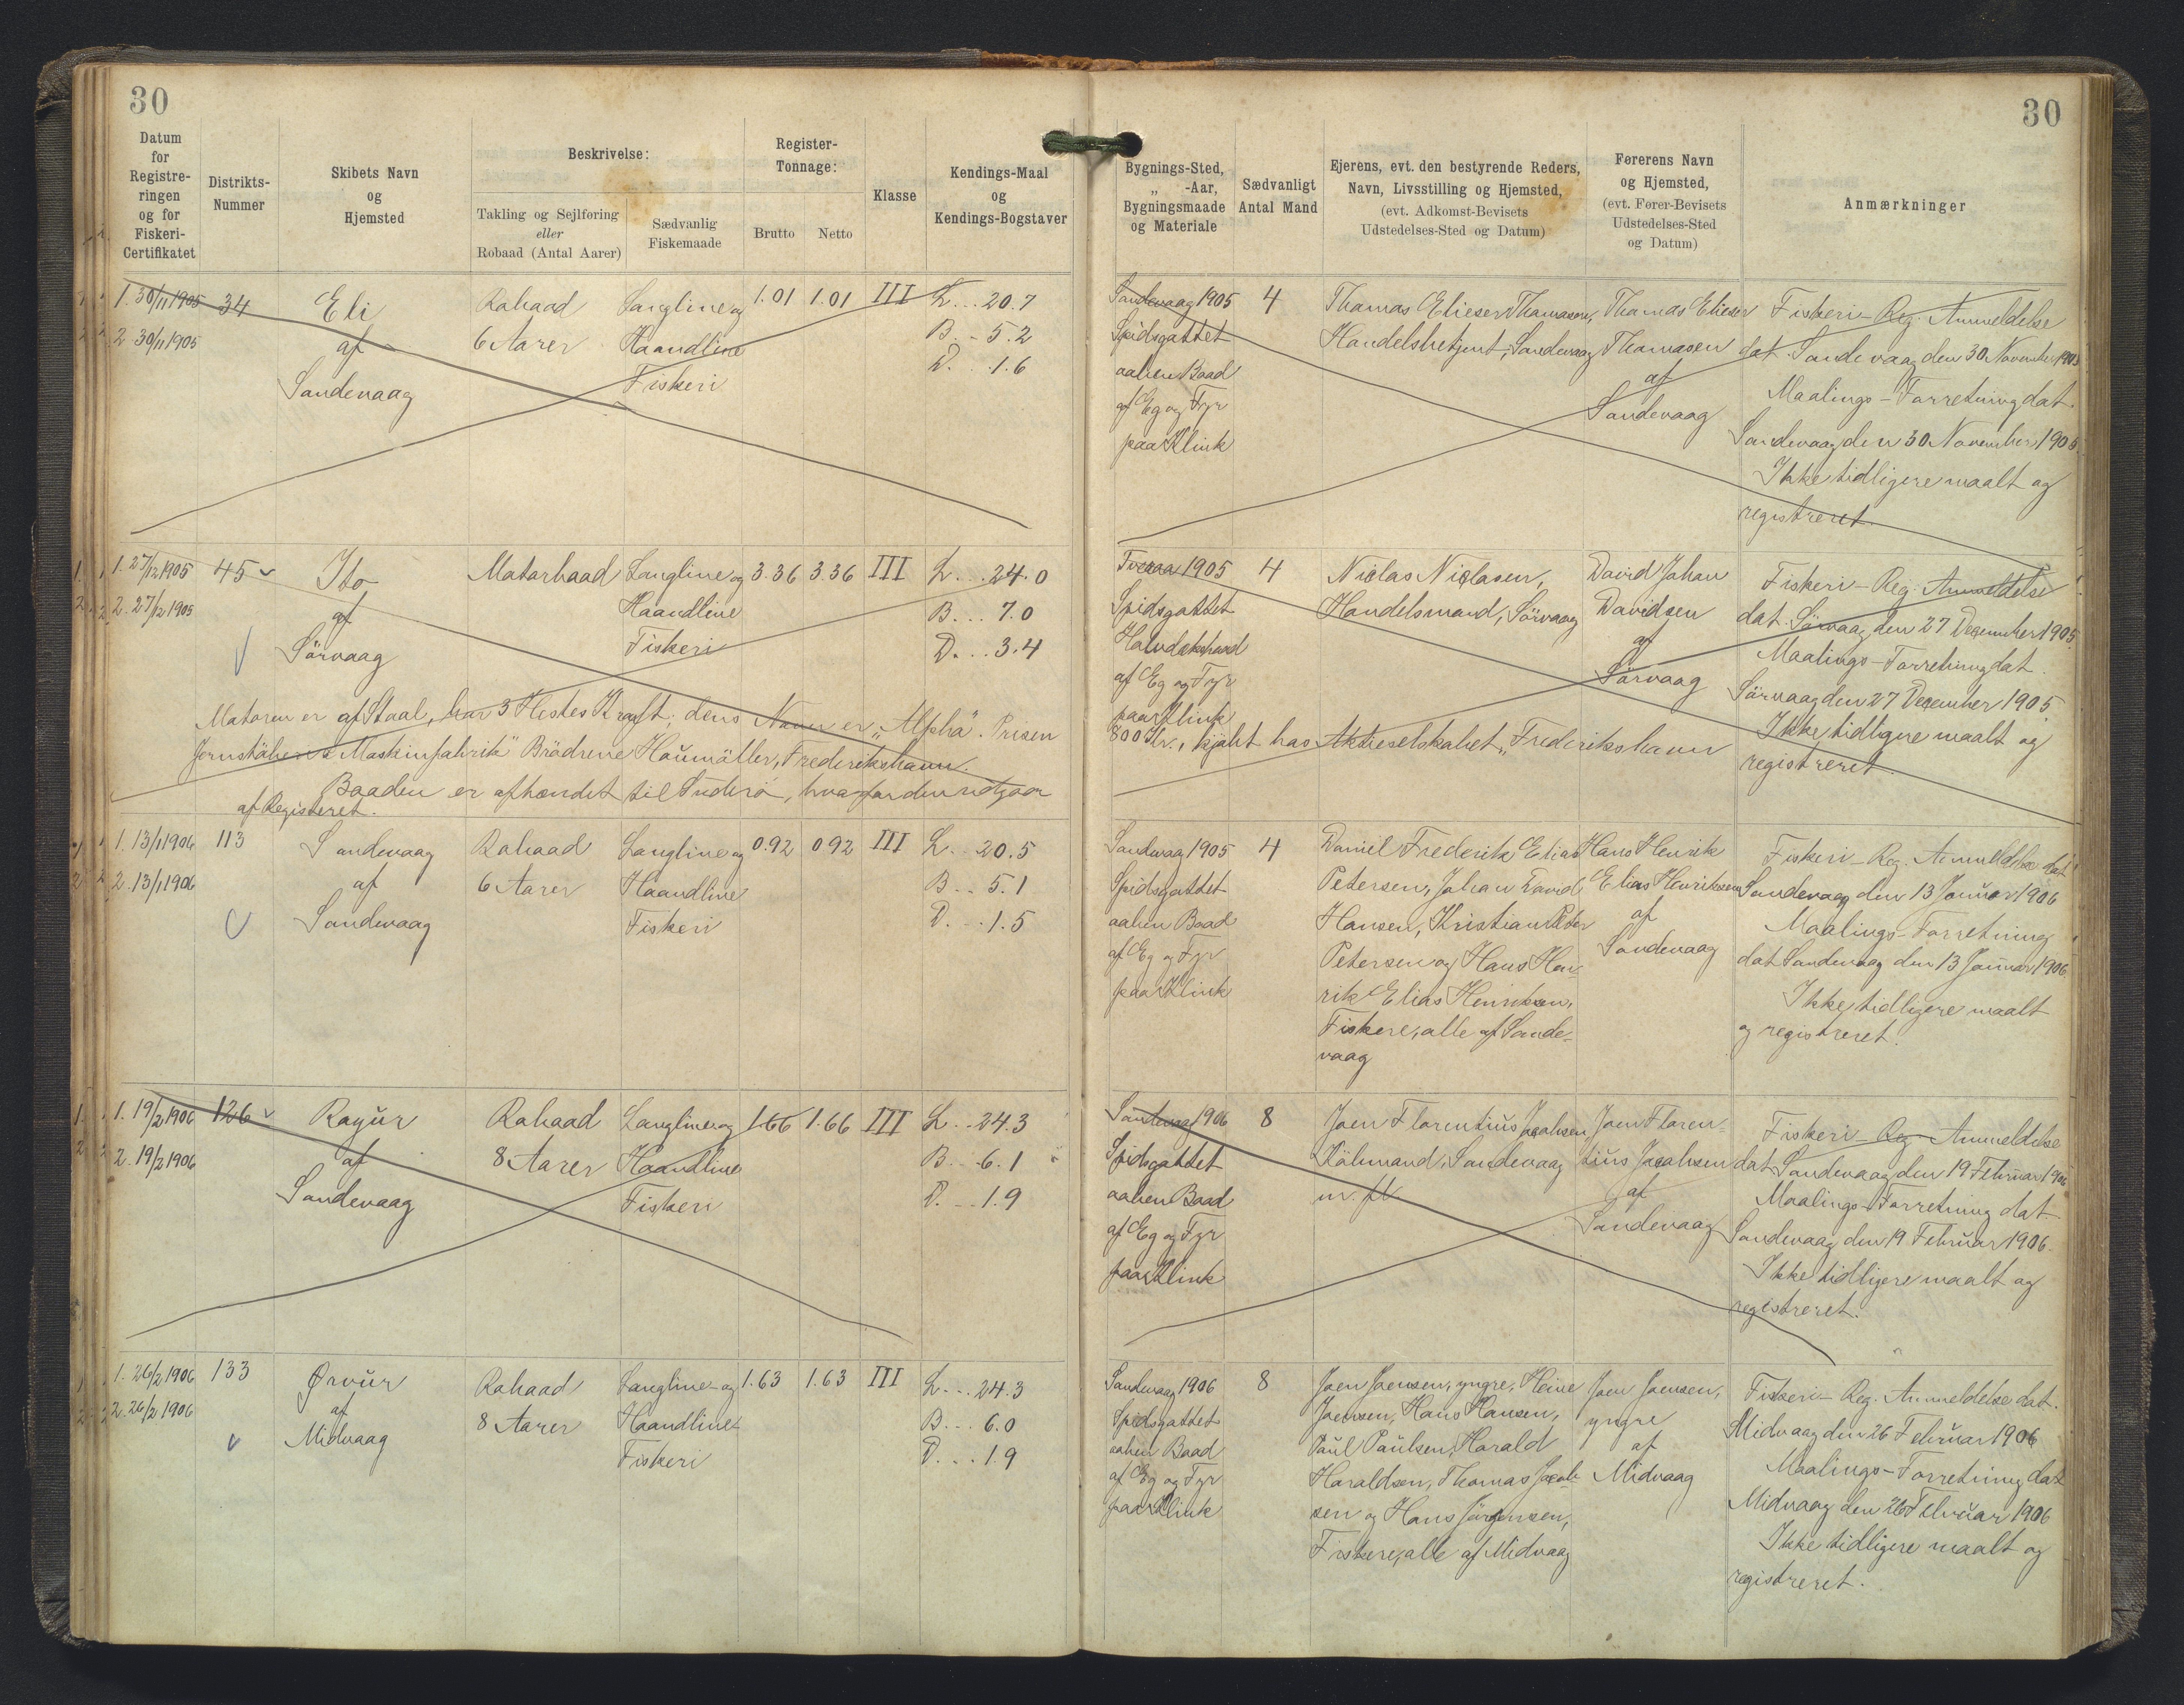 30
30
Datum for Registreringen og for Fiskeri-Certifikatet
Distrikts-Nummer
Skibets Navn og Hjemsted
Beskrivelse:
Takling og Sejlføring eller Robaad (Antal Aarer)
Sædvanlig Fiskemaade
Register-Tonnage:
Brutto
Netto
Klasse
Kendings-Maal og Kendings-Bogstaver
Bygnings-Sted, „ -Aar, Bygningsmaade og Materiale
Sædvanligt Antal Mand
Ejerens, evt. den bestyrende Reders, Navn, Livsstilling og Hjemsted, (evt. Adkomst-Bevisets Udstedelses-Sted og Datum)
Førerens Navn og Hjemsted, (evt. Fører-Bevisets Udstedelses-Sted og Datum)
Anmærkninger
1. 30/11 1905
2. 30/11 1905
34
Eli
af
Sandevaag
Robaad
6 Aarer
Langline og
Haandline
Fiskeri
1.01
1.01
III
L... 20.7
B... 5.2
D... 1.6
Sandevaag 1905
Spidsgattet
aaben Baad
af Eg og Fyr
paa Klink
4
Thomas Elieser Thomasen,
Handelsbetjent, Sandevaag
Thomas Elieser
Thomasen
af
Sandevaag
Fiskeri-Reg. Anmeldelse
dat. Sandevaag den 30 November 1905
Maalings-Forretning dat.
Sandevaag den 30 November 1905
Ikke tidligere maalt og
registreret.
1. 27/12 1905
2. 27/12 1905
45
Ito
af
Sörvaag
Motorbaad
Langline og
Haandline
Fiskeri
3.36
3.36
III
L... 24.0
B... 7.0
D... 3.4
Motoren er af Staal, har 3 Hestes Kraft; dens Navn er „Alpha". Prisen
800 Kr., kjøbt hos Aktieselskabet „Frederikshavn
Jernstöberi & Maskinfabrik" Brödrene Houmöller, Frederikshavn.
Baaden er afhændet til Suderö, hvorfor den udgaar
af Registeret.
Tveraa 1905
Spidsgattet
Halvdæksbaad
af Eg og Fyr
paa Klink
4
Niclas Niclasen,
Handelsmand, Sörvaag
David Johan
Davidsen
af
Sörvaag
Fiskeri-Reg. Anmeldelse
dat. Sörvaag den 27 December 1905
Maalings-Forretning dat.
Sörvaag den 27 December 1905
Ikke tidligere maalt og
registreret.
1. 13/1 1906
2. 13/1 1906
113
Sandevaag
af
Sandevaag
Robaad
6 Aarer
Langline og
Haandline
Fiskeri
0.92
0.92
III
L... 20.5
B... 5.1
D... 1.5
Sandevaag 1905
Spidsgattet
aaben Baad
af Eg og Fyr
paa Klink
4
Daniel Frederik Elias
Petersen, Johan David
Hansen, Kristian Peter
Petersen og Hans Hen-
rik Elias Henriksen,
Fiskere, alle af Sande-
vaag
Hans Henrik
Elias Henriksen
af
Sandevaag
Fiskeri-Reg. Anmeldelse dat.
Sandevaag den 13 Januar 1906
Maalings-Forretning
dat. Sandevaag den 13 Januar 1906.
Ikke tidligere maalt
og registreret.
1. 19/2 1906
2. 19/2 1906
126
Ragur
af
Sandevaag
Robaad
8 Aarer
Langline og
Haandline
Fiskeri
1.66
1.66
III
L... 24.3
B... 6.1
D... 1.9
Sandevaag 1906
Spidsgattet
aaben Baad
af Eg og Fyr
paa Klink
8
Joen Florentius Jacobsen,
Kålmand, Sandevaag
m. fl.
Joen Floren-
tius Jacobsen
af
Sandevaag
Fiskeri-Reg. Anmeldelse
dat. Sandevaag den 19 Februar 1906
Maalings-Forretning dat.
Sandevaag den 19 Februar 1906.
Ikke tidligere maalt og
registreret.
1. 26/2 1906
2. 26/2 1906
133
Ørvur
af
Midvaag
Robaad
8 Aarer
Langline- og
Haandline-
Fiskeri
1.63
1.63
III
L... 24.3
B... 6.0
D... 1.9
Sandevaag 1906
Spidsgattet
aaben Baad
af Eg og Fyr
paa Klink
8
Joen Joensen, yngre, Heine
Joensen, Hans Hansen,
Paul Paulsen, Harald
Haraldsen, Thomas Jacob-
sen og Hans Jörgensen,
Fiskere, alle af Midvaag
Joen Joensen,
yngre
af
Midvaag
Fiskeri-Reg. Anmeldelse dat.
Midvaag den 26 Februar 1906
Maalings-Forretning dat.
Midvaag den 26 Februar 1906
Ikke tidligere maalt og
registreret.